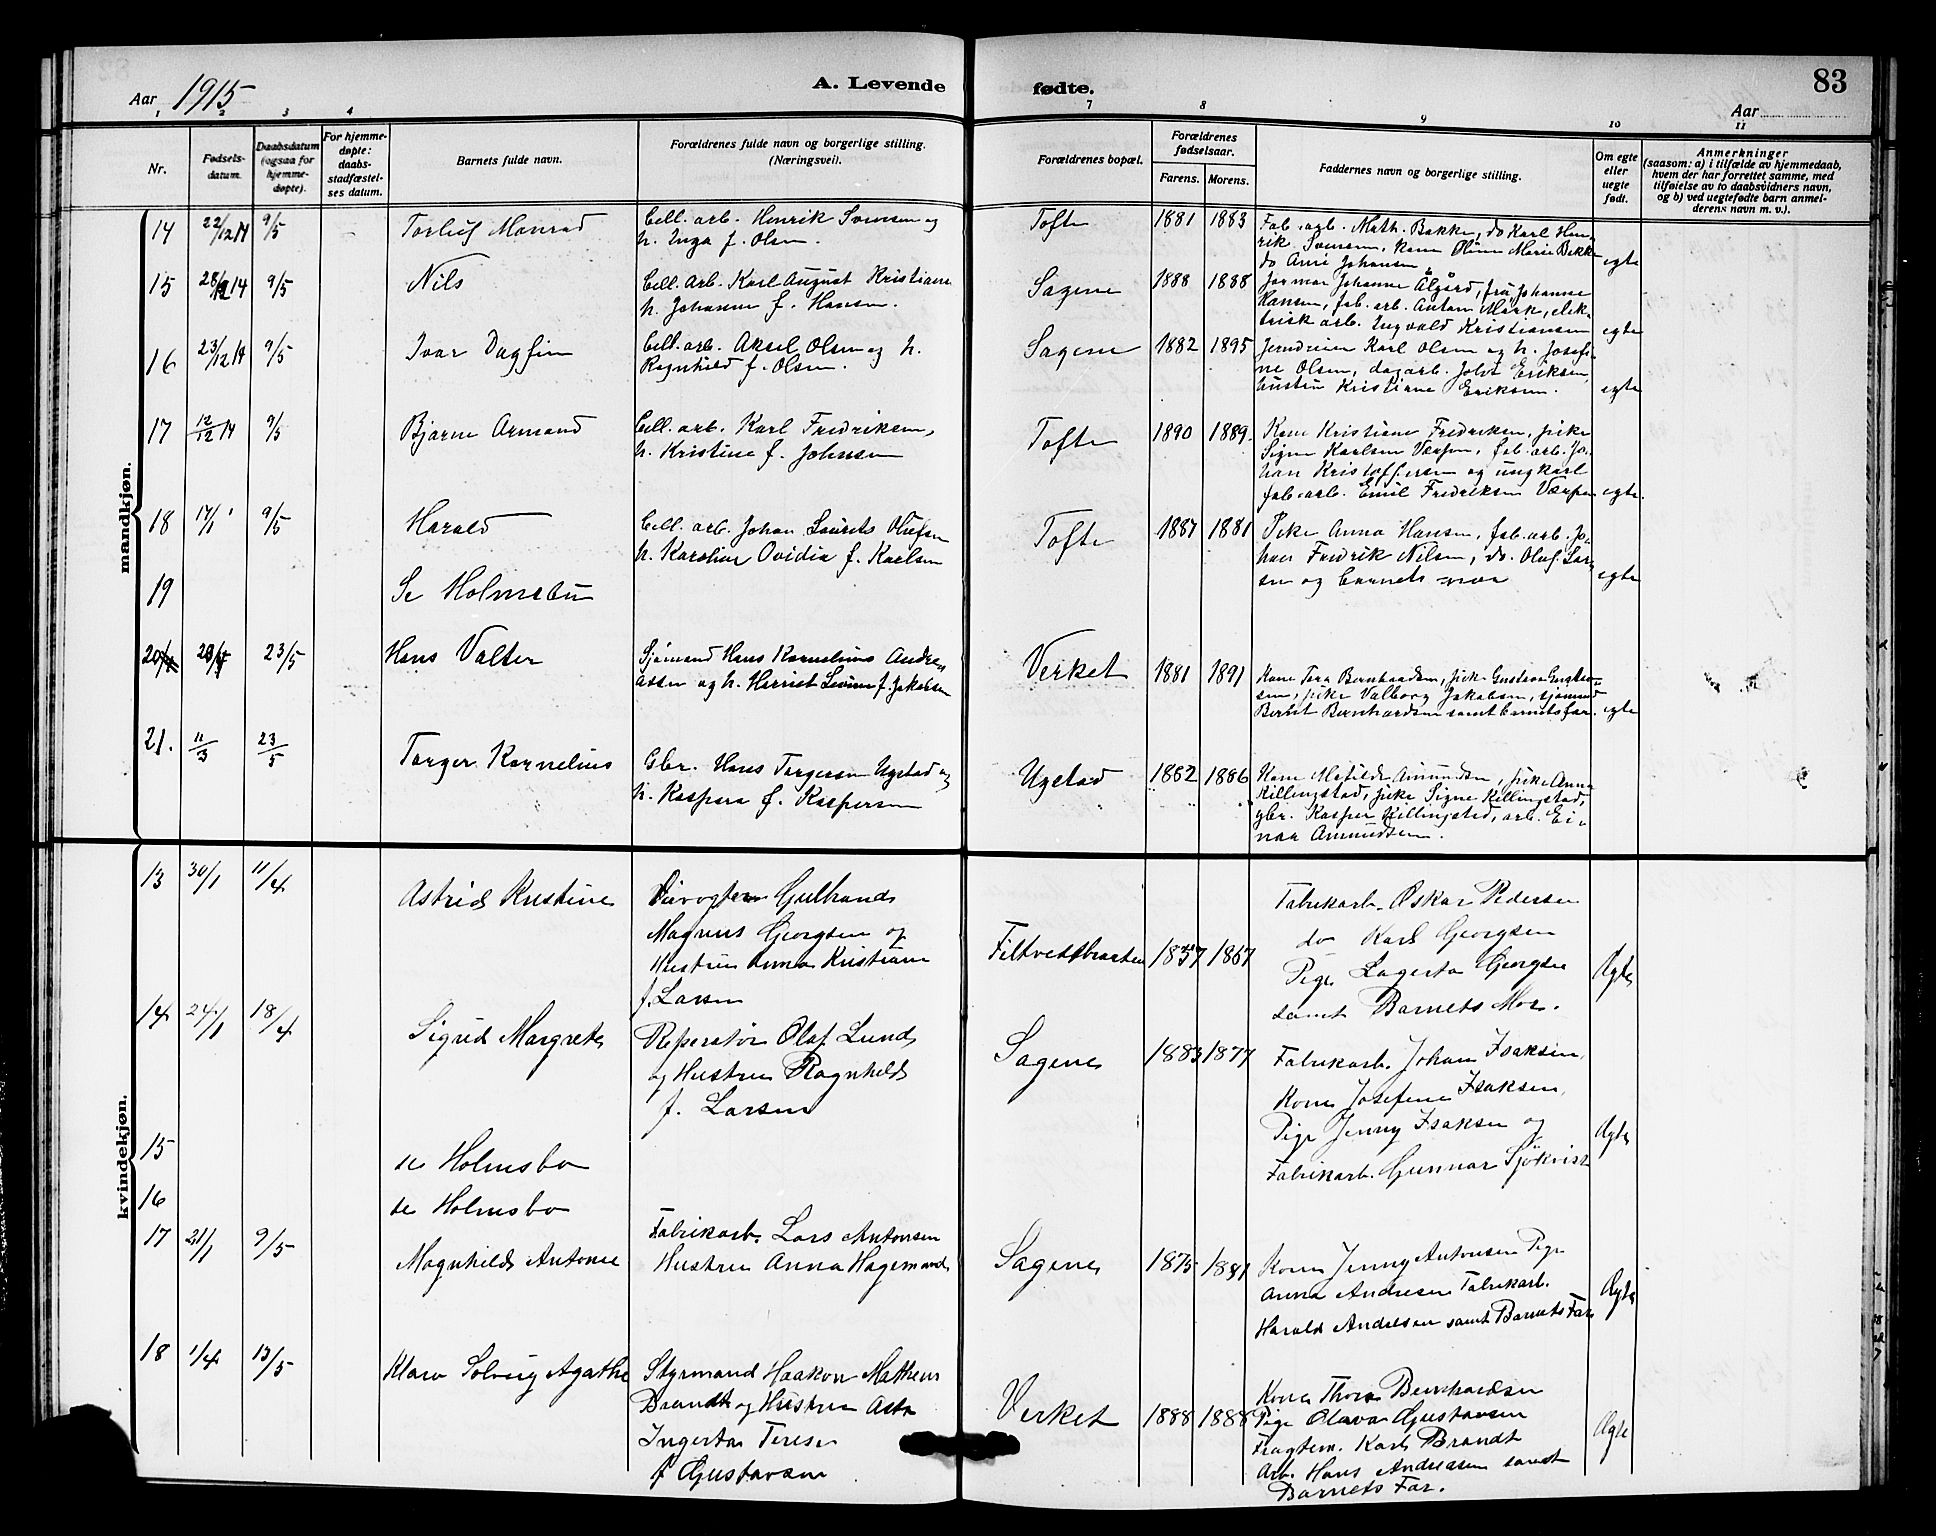 83
Aar 1915
A. Levende
fødte.
Aar
1 2 3 4
7 8 9 10 11
Nr.
Fødsels-
datum.
Daabsdatum
(ogsaa for
hjemme-
døpte).
For hjemme-
døpte:
daabs-
stadfæstel-
ses datum.
Barnets fulde navn.
Forældrenes fulde navn og borgerlige stilling.
(Næringsvei).
Forældrenes bopæl.
Forældrenes
fødselsaar.
Farens. Morens.
Faddernes navn og borgerlige stilling.
Om egte
eller
uegte
født.
Anmerkninger
(saasom: a) i tilfælde av hjemmedaab,
hvem der har forrettet samme, med
tilføielse av to daabsvidners navn,
og b) ved uegtefødte barn anmel-
derens navn m. v.).
mandkjøn.
14 22/12 14 9/5 Torleif Monrad
Cell. arb. Henrik Svensen og
h. Inga f. Olsen.
Tofte 1881 1883
Fab. arb. Math. Bakke, do Karl Hen-
rik Svensen, kone Oline Marie Bakke
do Anne Johansen
egte
15 28/12 14 9/5 Nils
Cell. arb. Karl August Kristians
h. Johanne f. Hansen.
Sagene 1888 1888
Johanne Ålgård, fru Johanne
Hansen, fab. arb. Anton Mørk, elek-
trisk arb. Ingvald Kristiansen
egte
16 23/12 14 9/5 Ivar Dagfin
Cell. arb. Aksel Olsen og h.
Ragnhild f. Olsen.
Sagene 1882 1895
Jerndreier Karl Olsen og h. Josefi-
ne Olsen, dagarb. Johs Eriksen,
hustru Kristiane Eriksen.
egte
17 12/12 14 9/5 Bjarne Armand
Cell. arb. Karl Fredriksen,
h. Kristine f. Johnsen
Tofte 1890 1889.
Kone Kristiane Fredriksen, pike
Signe Karlsen Værpen, fab. arb. Jo-
han Kristoffersen og ungkarl
fab. arb. Emil Fredriksen Værpen
egte.
18 17/1 9/5 Harald
Cell. arb. Johan Laurits Olufsen
h. Karoline Ovidia f. Karlsen
Tofte 1887 1881
Pike Anna Hansen, fab. arb. Jo-
han Fredrik Nilsen, do. Olaf Lar-
sen og barnets mor
egte
19 Se Holmsbu
20 23/5 Hans Valter
Sjømand Hans Kornelius Andre-
assen og h. Harriet Levine f. Jakobsen
Verket 1881 1891
Kone Tora Bernhardsen, pike Gustava Gustav-
sen, pike Valborg Jakobsen, sjømand
Bernt Bernhardsen samt barnets far.
egte
21. 11/3 23/5 Torger Kornelius
Gbr. Hans Torgersen Ugstad og
h. Kaspara f. Kaspersen
Ugstad 1882 1886
Kone Matilde Amundsen, pike Anna
Killingstad, pike Signe Killingstad,
gbr. Kasper Killingstad, arb. Ei-
nar Amundsen.
kvindekjøn.
13 30/1 11/4 Astrid Kristine
Gulbrand
Magnus Georgsen og
Hustru Anna Kristiane
f. Larsen
Filtvedtbraaten 1857 1867
Fabrikarb. Oskar Pedersen
do Karl Georgsen
Pige Lagerta Georgsen
samt Barnets Mor.
Ægte
14 24/1 18/4 Sigrid Margrete
Reperatør Olaf Lund
og Hustru Ragnhild
f. Larsen
Sagene 1883 1877
Fabrikarb. Johan Isaksen,
Kone Josefine Isaksen,
Pige Jenny Isaksen og
Fabrikarb. Gunnar Sjøkvist
Ægte
15 se Holmsbo
16 se Holmsbo
17 21/1 9/5 Magnhild Antonie
Fabrikarb. Lars Antonsen
Hustru Anna Hagemand
Sagene 1875 1881
Kone Jenny Antonsen Pige
Anna Andresen Fabrikarb.
Harald Andresen samt Barnets Far
Ægte
18 1/4 13/5 Klara Solveig Agathe
Styrmand Haakon Matheus
Brandt og Hustru Asta
Ingerta Terese
f Gustavsen
Verket 1888 1888
Kone Thora Bernhardsen
Pige Olava Gustavsen
Fragtem. Karl Brandt
Arb. Hans Andreasen samt
Barnets Far.
Ægte